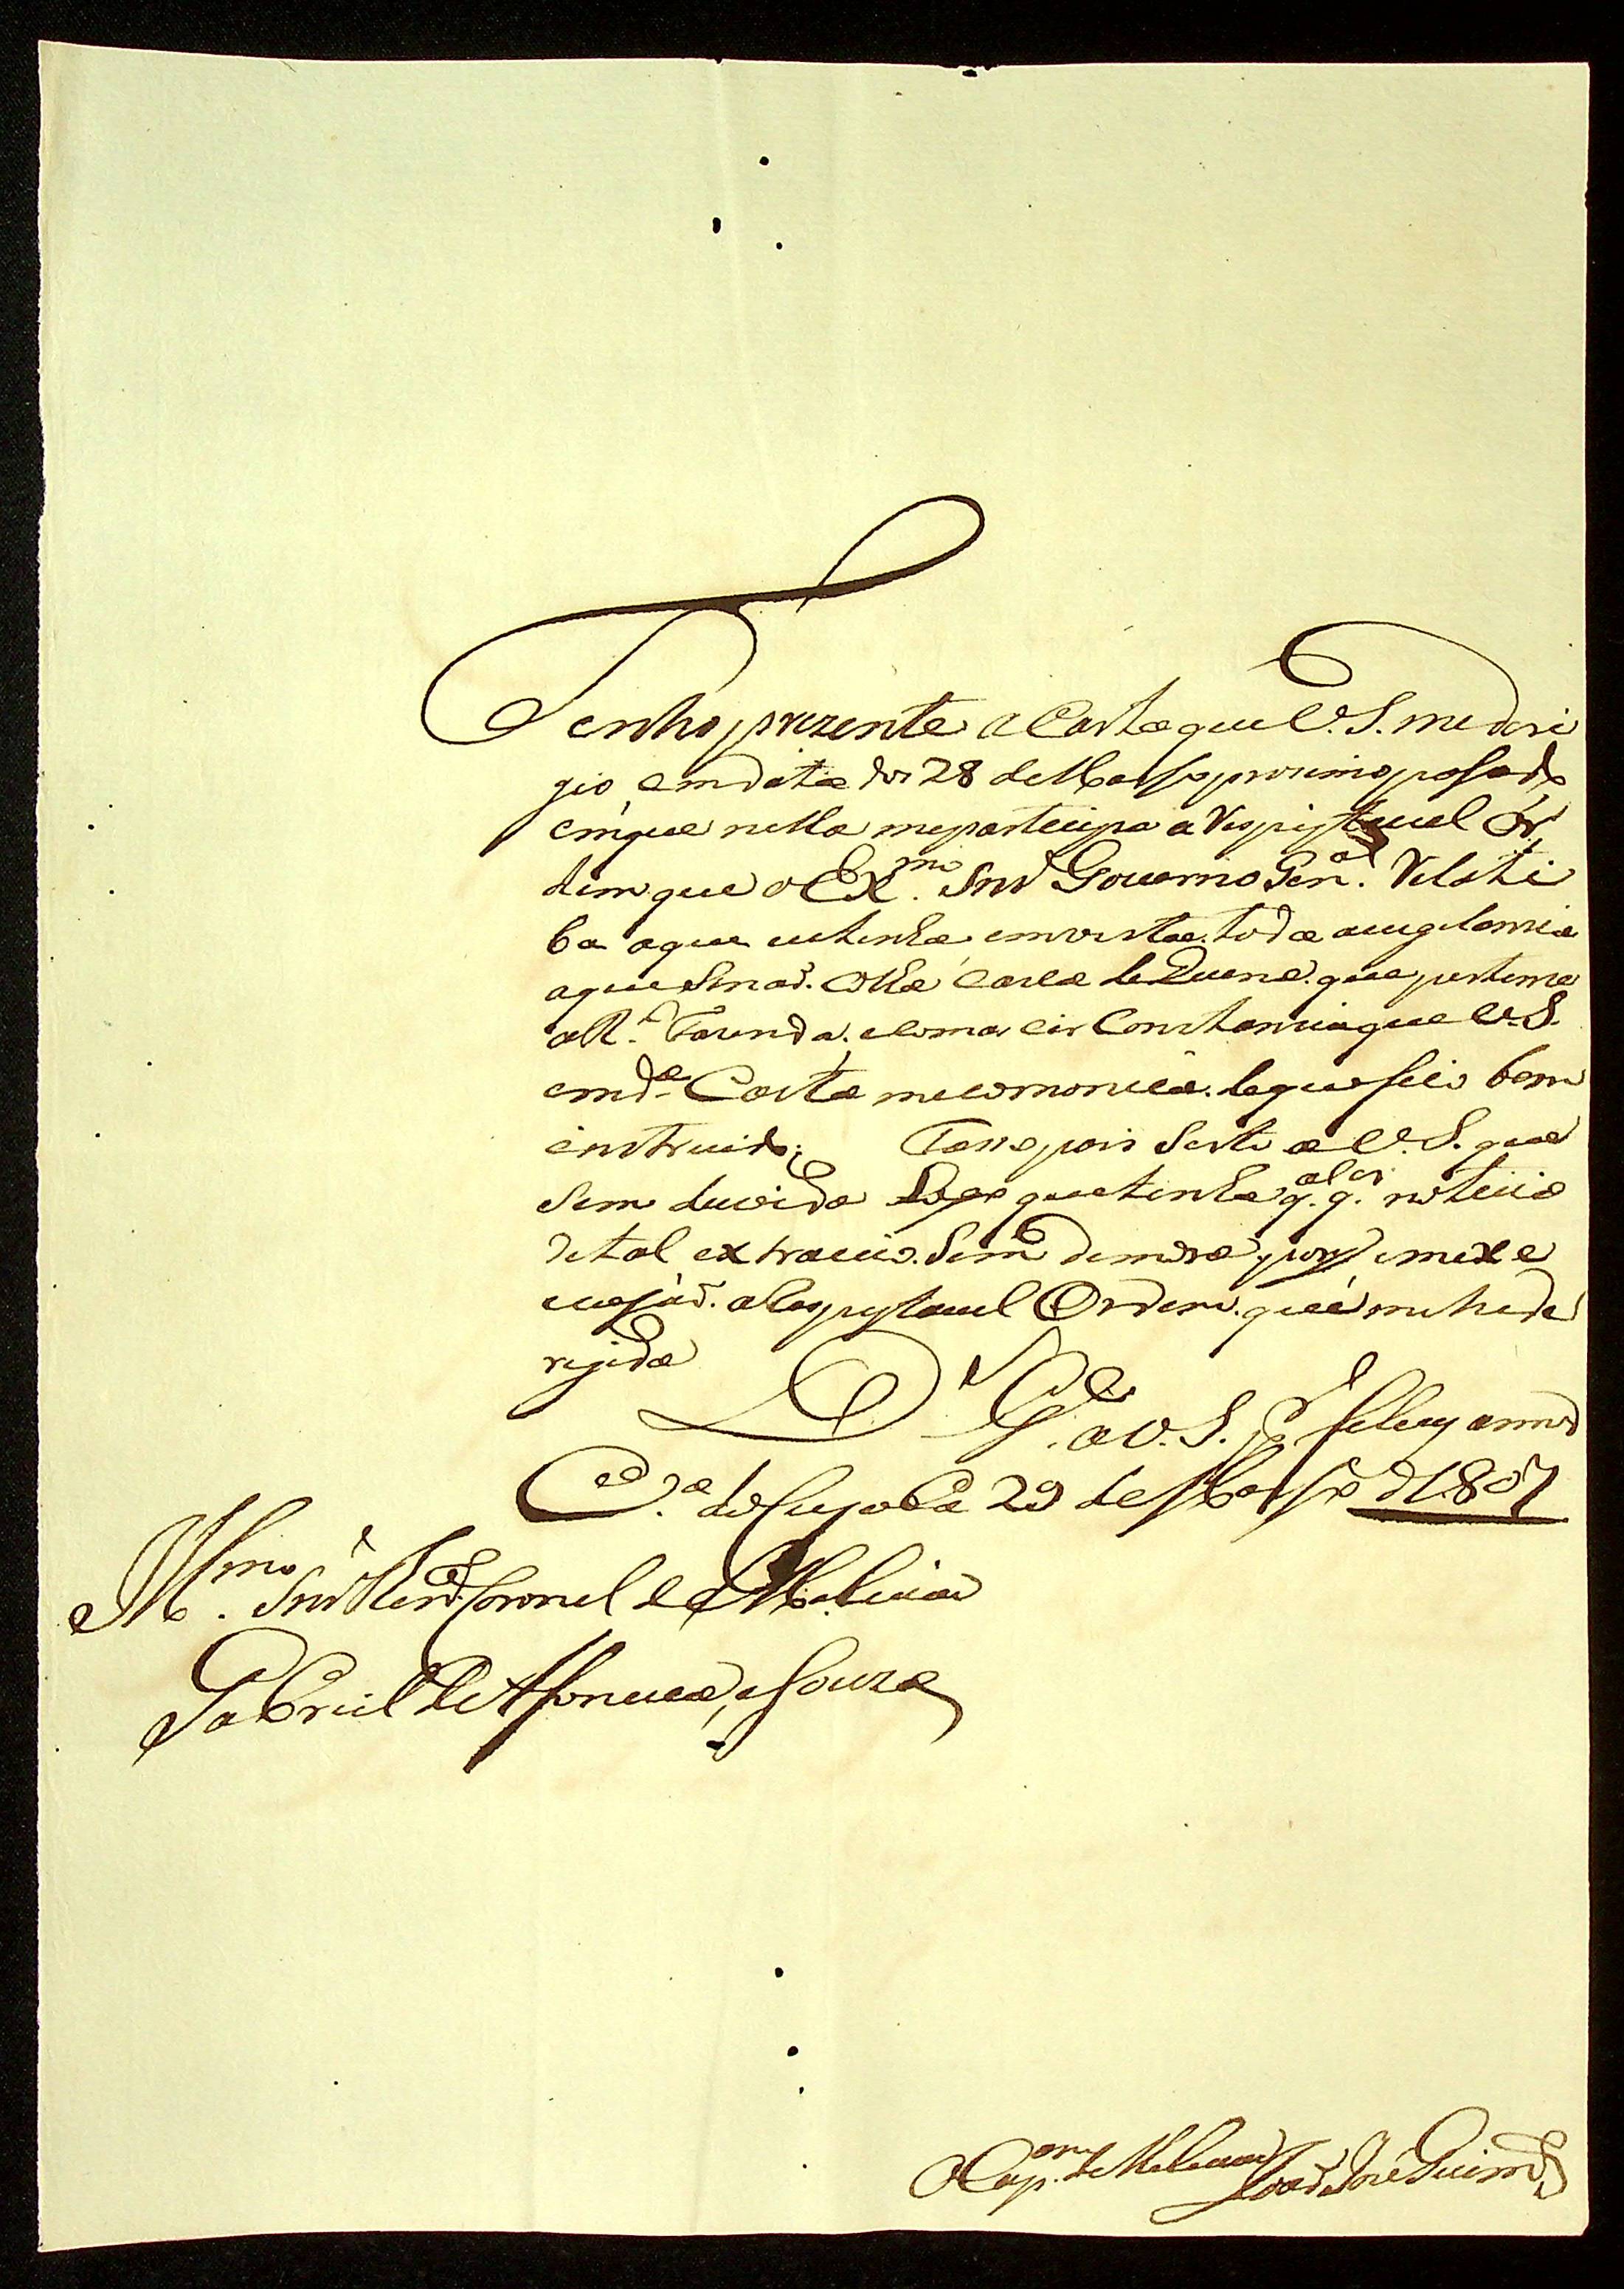 Tenho prezente a Carta que V. S. me deri
gio em data de 28 de Março proximo pasado
em que nella me partecipa a Respeytavel Or
dem que o Ex.mo Snr Governo Gen.al
ba a que eu tenha em vista toda a vegilancia
a que Se naõ. de Quina. que pertence
a R.l Fazenda.              Constancia que V. S.
em d.a Carta me comonica. de que fico bem
instruido;     Fasso pois Serto a V. S. que
Sem duvida Logo que tenha q.al q.r noticia
de tal extravio. Sem demora
a Respeytavel Ordem. que me he de
regida
D.s G.e a V. S. p.r feleces annos
29 de Março d 1807
Ill.mo Snr Ten.e Coronel de Melicias
Gabriel De Afonceca, e Souza
O Cap.am de Melicias Joaõ Jose Guim.es